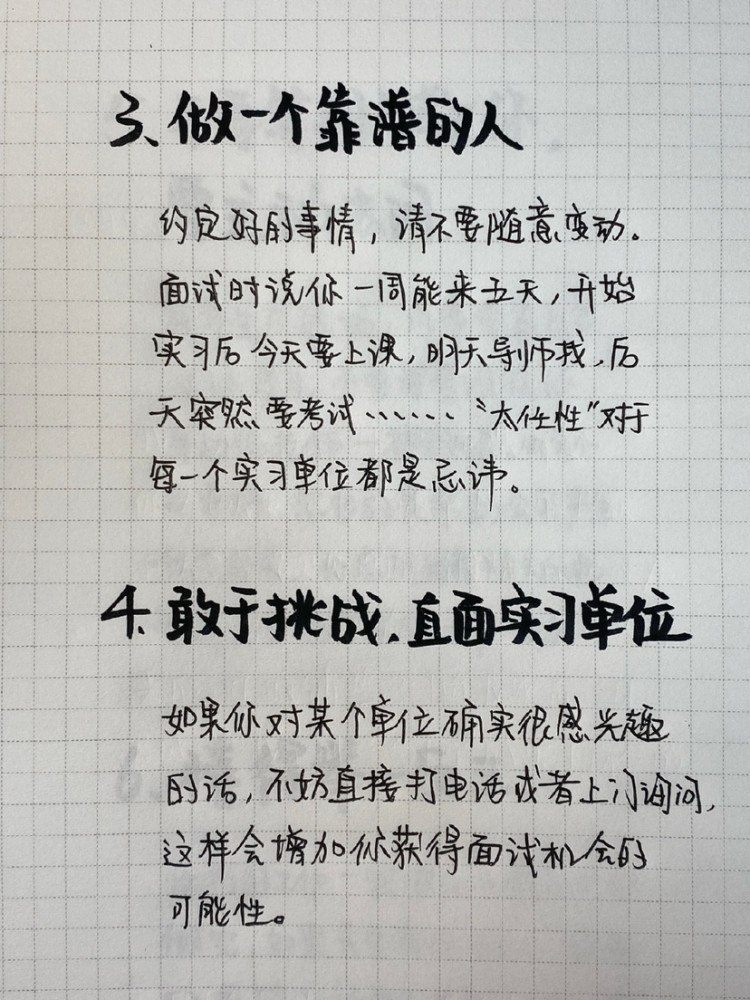 3、做一个靠谱的人
约定好的事情，请不要随意变动。
面试时说你一周能来五天，开始
实习后今天要上课，明天导师找，后
天突然要考试……“太任性”对于
每一个实习单位都是忌讳。
4、敢于挑战，直面实习单位
如果你对某个单位确实很感兴趣
的话，不妨直接打电话或者上门询问，
这样会增加你获得面试机会的
可能性。